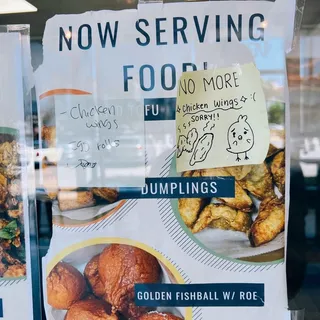 NOW SERVING
FOOD!
NO MORE
Chicken Wings :(
SORRY!!
- Chicken
wings
FU
rolls
DUMPLINGS
GOLDEN FISHBALL W/ ROE